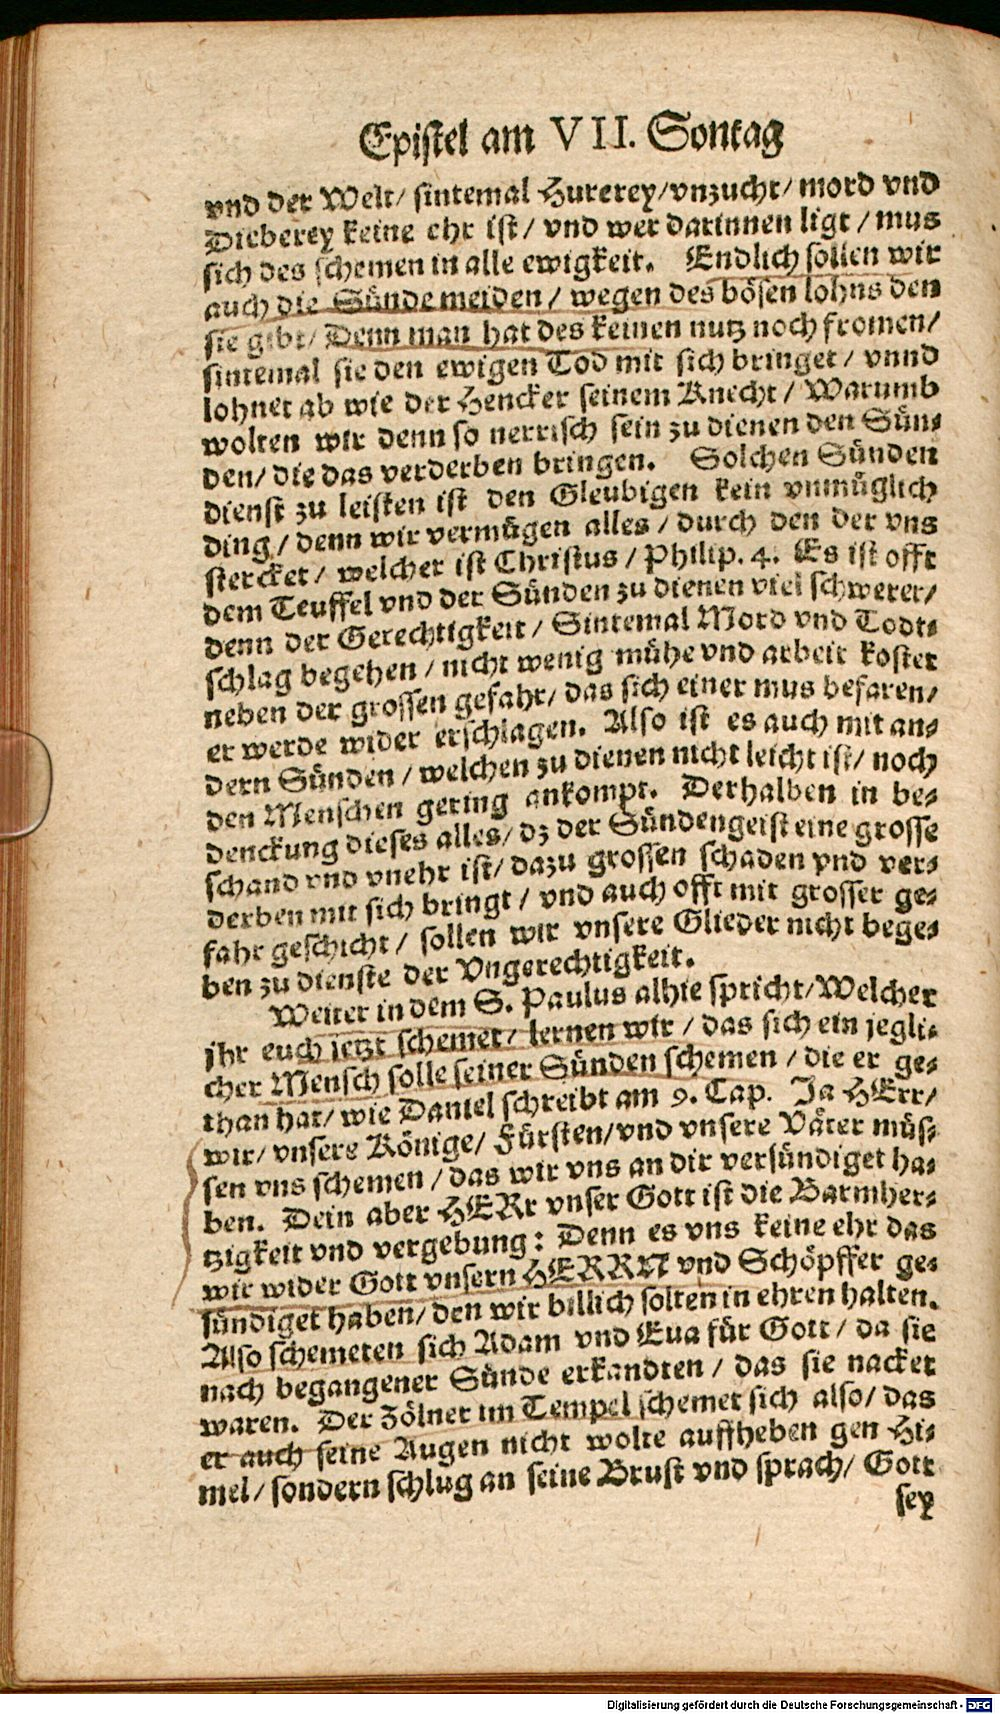 Epistel am VII. Sontag
vnd der Welt/ sintemal Hurerey/vnzucht/ mord vnd
Dieberey keine ehr ist/ vnd wer darinnen ligt / mus
sich des schemen in alle ewigkeit. Endlich sollen wir
auch die Sünde meiden / wegen des bösen lohns den
sie gibt/ Denn man hat des keinen nutz noch fromen/
sintemal sie den ewigen Tod mit sich bringet / vnnd
lohnet ab wie der Hencker seinem Knecht / Warumb
wolten wir denn so nerrisch sein zu dienen den Sün-
den/ die das verderben bringen. Solchen Sünden
dienst zu leisten ist den Gleubigen kein vnmüglich
ding / denn wir vermügen alles / durch den der vns
stercket / welcher ist Christus / Philip. 4. Es ist offt
dem Teuffel vnd der Sünden zu dienen viel schwerer/
denn der Gerechtigkeit / Sintemal Mord vnd Todt-
schlag begehen / nicht wenig mühe vnd arbeit kostet
neben der grossen gefahr/ das sich einer mus befaren/
er werde wider erschlagen. Also ist es auch mit an-
dern Sünden / welchen zu dienen nicht leicht ist/ noch
den Menschen gering ankompt. Derhalben in be-
denckung dieses alles/ dz der Sündengeist eine grosse
schand vnd vnehr ist/ dazu grossen schaden vnd ver-
derben mit sich bringt / vnd auch offt mit grosser ge-
fahr geschicht / sollen wir vnsere Glieder nicht bege-
ben zu dienste der Vngerechtigkeit.
Weiter in dem S. Paulus alhie spricht/Welcher
jhr euch jetzt schemet/ lernen wir / das sich ein jegli-
cher Mensch solle seiner Sünden schemen / die er ge-
than hat/ wie Daniel schreibt am 9. Cap. Ja HErr/
wir/ vnsere Könige/ Fürsten/vnd vnsere Väter müs-
sen vns schemen / das wir vns an dir versündiget ha-
ben. Dein aber HERr vnser Gott ist die Barmher-
tzigkeit vnd vergebung: Denn es vns keine ehr das
wir wider Gott vnsern HERRN vnd Schöpffer ge-
sündiget haben/ den wir billich solten in ehren halten.
Also schemeten sich Adam vnd Eua für Gott / da sie
nach begangener Sünde erkandten / das sie nacket
waren. Der Zölner im Tempel schemet sich also/ das
er auch seine Augen nicht wolte auffheben gen Hi-
mel / sondern schlug an seine Brust vnd sprach/ Gott
sey
Digitalisierung gefördert durch die Deutsche Forschungsgemeinschaft - DFG